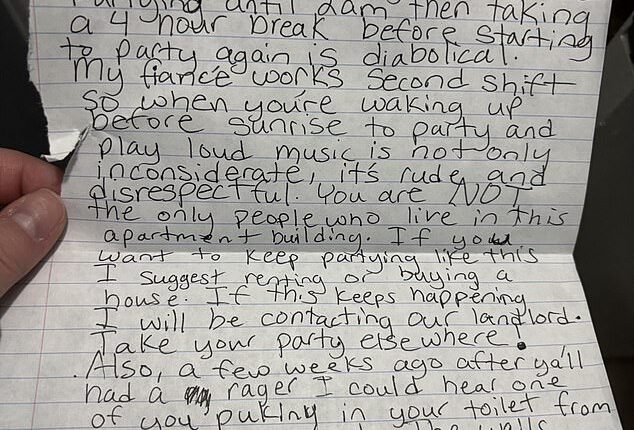 Partying until 2am then taking
a 4 hour break before starting
to party again is diabolical.
My fiance works second shift
so when you're waking up
before sunrise to party and
play loud music is not only
inconsiderate, it's rude and
disrespectful. You are NOT
the only people who live in this
apartment building. If you
want to keep partying like this
I suggest renting or buying a
house. If this keeps happening
I will be contacting our landlord.
Take your party elsewhere!
Also, a few weeks ago after ya'll
had a rager I could hear one
of you puking in your toilet from
the walls